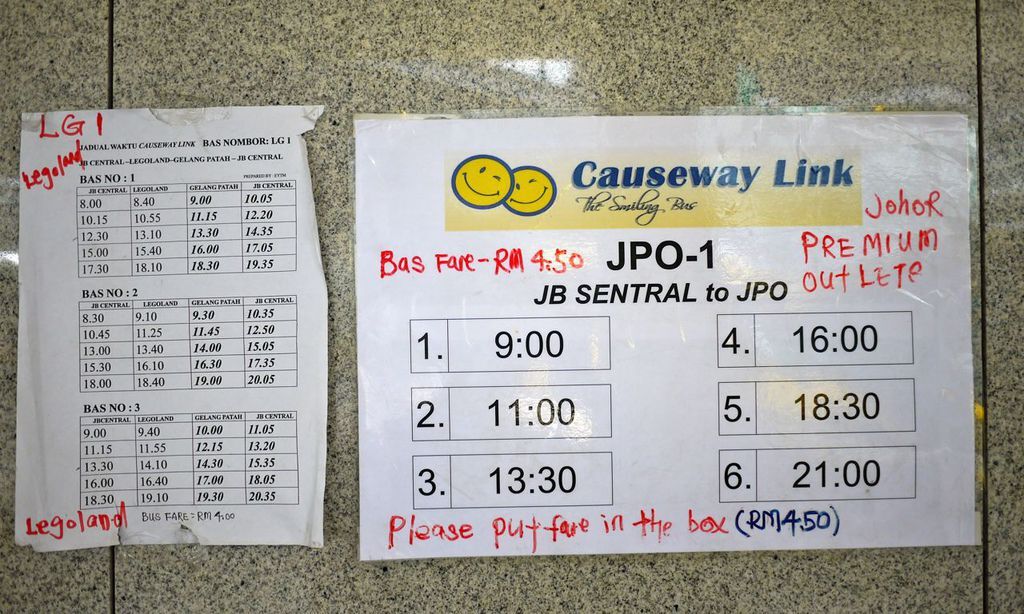 LG1
Legoland
JADUAL WAKTU CAUSEWAY LINK BAS NOMBOR: LG 1
JB CENTRAL–LEGOLAND–GELANG PATAH – JB CENTRAL
BAS NO : 1 PREPARED BY : EYTM
JB CENTRAL LEGOLAND GELANG PATAH JB CENTRAL
8.00 8.40 9.00 10.05
10.15 10.55 11.15 12.20
12.30 13.10 13.30 14.35
15.00 15.40 16.00 17.05
17.30 18.10 18.30 19.35
BAS NO : 2
JB CENTRAL LEGOLAND GELANG PATAH JB CENTRAL
8.30 9.10 9.30 10.35
10.45 11.25 11.45 12.50
13.00 13.40 14.00 15.05
15.30 16.10 16.30 17.35
18.00 18.40 19.00 20.05
BAS NO : 3
JBCENTRAL LEGOLAND GELANG PATAH JB CENTRAL
9.00 9.40 10.00 11.05
11.15 11.55 12.15 13.20
13.30 14.10 14.30 15.35
16.00 16.40 17.00 18.05
18.30 19.10 19.30 20.35
Legoland BUS FARE = RM 4.00
Causeway Link
The Smiling Bus
Johor
PREMIUM
OutLETS
Bas Fare - RM 4.50 JPO-1
JB SENTRAL to JPO
1. 9:00 4. 16:00
2. 11:00 5. 18:30
3. 13:30 6. 21:00
Please put fare in the box (RM4.50)